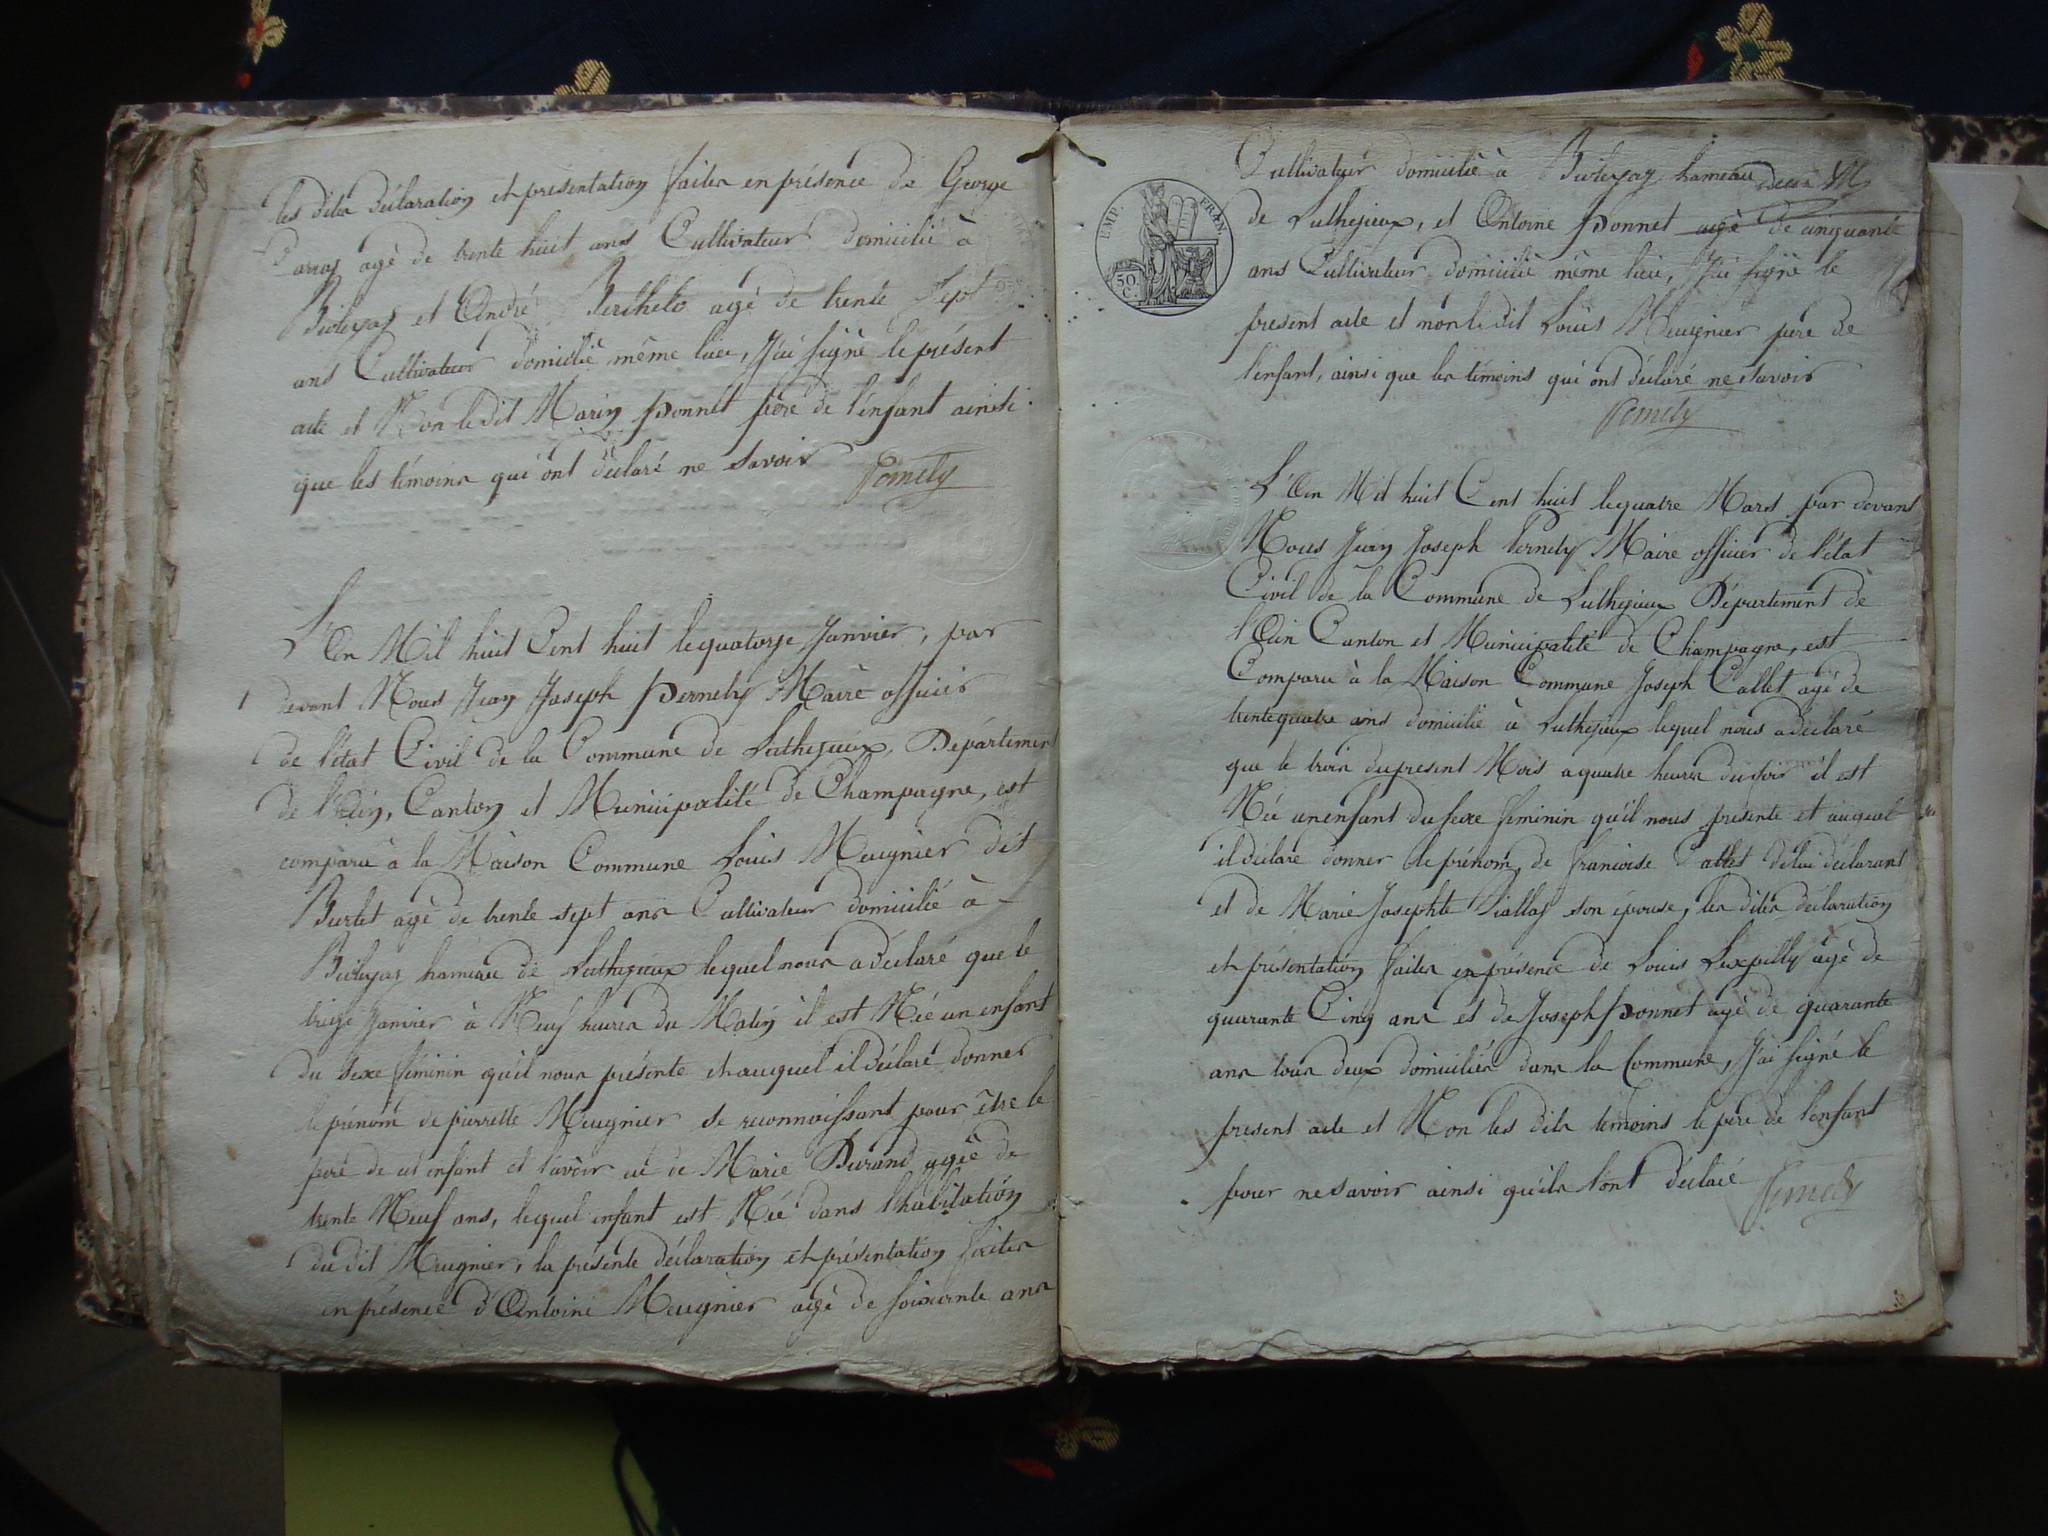 les dites déclaration et présentation faites en présence de George
agé de trente huit ans Cultivateur domicilié à
et André Berthelo agé de trente Sept
ans Cultivateur domicilié même lieu, J'ai signé le présent
acte et Non le dit Marin Ponnet père de l'enfant ainsi
que les témoins qui ont déclaré ne savoir
L'An Mil huit Cent huit le quatorze Janvier, par
devant Nous Jean Joseph Pernety Maire officier
de l'état Civil de la Commune de Luthezieux, Département
de l'Ain, Canton et Municipalité de Champagne, est
comparu à la Maison Commune Louis Meugnier dit
Burlet agé de trente sept ans Cultivateur domicilié à
hameau de Luthezieux lequel nous a déclaré que le
treize Janvier à Neuf heures du Matin il est Née un enfant
du sexe féminin qu'il nous présente et auquel il déclaré donner
le prénom de pierrette Meugnier se reconnoissant pour être le
père de cet enfant et l'avoir eû de Marie Durand agée de
trente Neuf ans, lequel enfant est Née dans l'habitation
du dit Meugnier, la présente déclaration et présentation faites
en présence d'Antoine Meugnier agé de soixante ans
EMP. FRAN.
50 C.
Cultivateur domicilié à hameau
de Luthezieux, et Antoine Ponnet agé de cinquante
ans Cultivateur domicilié même lieu, J'ai signé le
present acte et non le dit Louis Meugnier père de
l'enfant, ainsi que les témoins qui ont déclaré ne savoir
L'An Mil huit Cent huit le quatre Mars par devant
Nous Jean Joseph Pernety Maire officier de l'état
Civil de la Commune de Luthezieux Département de
l'Ain Canton et Municipalité de Champagne, est
Comparu à la Maison Commune Joseph Callet agé de
trente quatre ans domicilié à Luthezieux lequel nous a déclaré
que le trois du present Mois a quatre heures du soir il est
Née un enfant du sexe feminin qu'il nous présente et auquel
il déclare donner le prénom de françoise Callet de lui déclarant
et de Marie Josephte son épouse, les dites déclaration
et présentation faites en présence de Louis Luxpilly agé de
quarante Cinq ans et de Joseph Ponnet agé de quarante
ans tous deux domiciliés dans la Commune, J'ai signé le
present acte et Non les dits témoins le père de l'enfant
pour ne savoir ainsi qu'ils l'ont déclaré